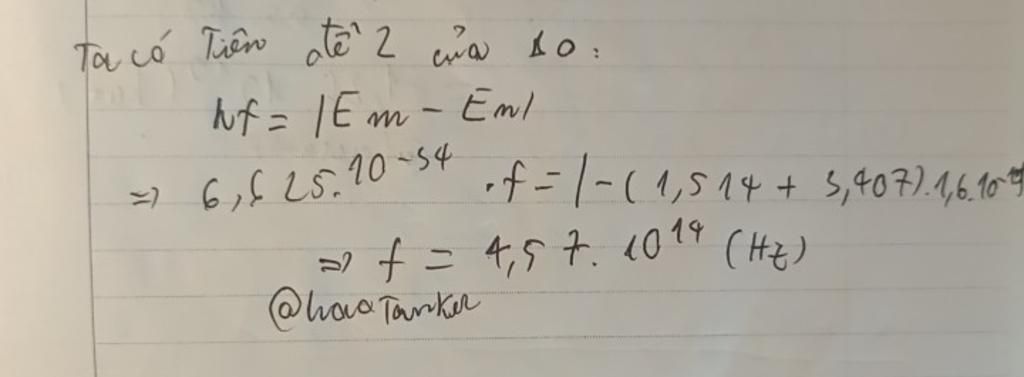 Ta có Tiên atề 2 của Bo:
hf = |Em - En|
=> 6,625.10^-34 .f = |-(1,514 + 3,407).1,6.10^-19
=> f = 4,57.10^14 (Hz)
@haoTanker